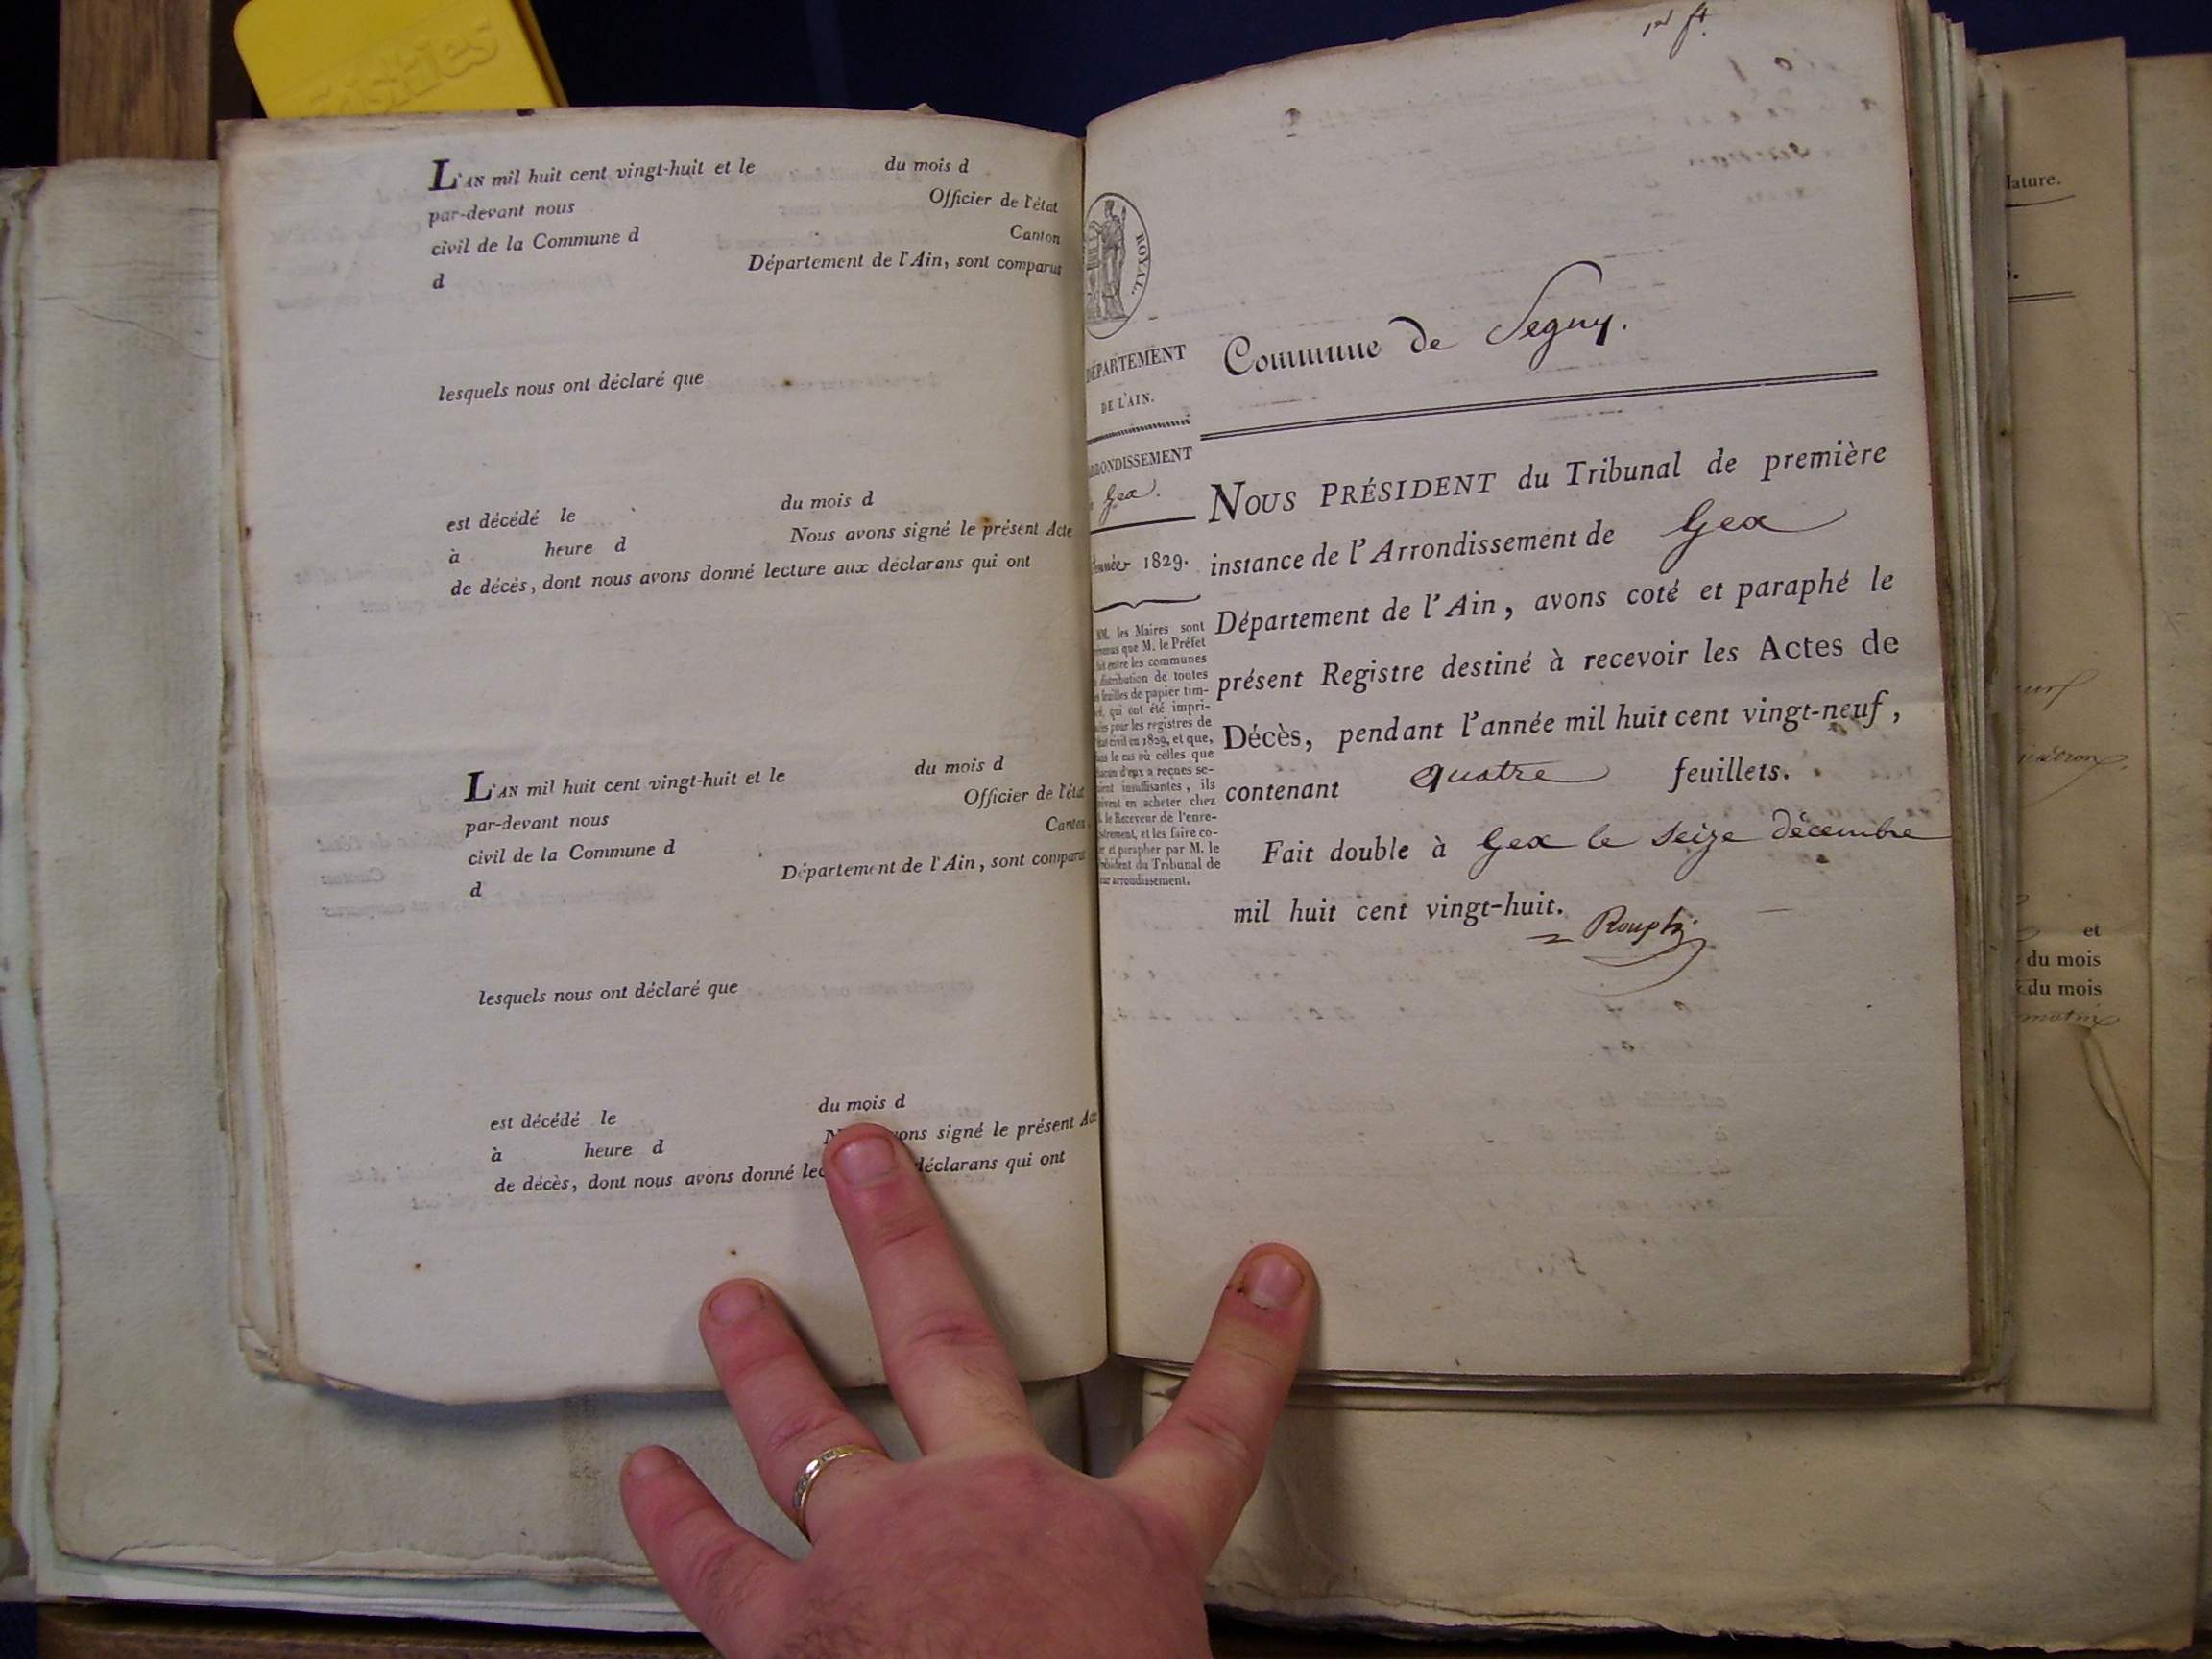 Fiskies
L'AN mil huit cent vingt-huit et le du mois d
par-devant nous Officier de l'état
civil de la Commune d Canton
d Département de l'Ain, sont comparus
lesquels nous ont déclaré que
est décédé le du mois d
à heure d Nous avons signé le présent Acte
de décès, dont nous avons donné lecture aux déclarans qui ont
L'AN mil huit cent vingt-huit et le du mois d
par-devant nous Officier de l'état
civil de la Commune d Canton
d Département de l'Ain, sont comparus
lesquels nous ont déclaré que
est décédé le du mois d
à heure d signé le présent
de décès, dont nous avons donné déclarans qui ont
1er ft.
ROYAL.
DÉPARTEMENT
DE L'AIN.
ARRONDISSEMENT
Gex.
Année 1829.
MM. les Maires sont
prévenus que M. le Préfet
fait entre les communes
la distribution de toutes
les feuilles de papier tim-
bré, qui ont été impri-
mées pour les registres de
l'état civil en 1829, et que,
dans le cas où celles que
chacun d'eux a reçues se-
raient insuffisantes, ils
doivent en acheter chez
M. le Receveur de l'enre-
gistrement, et les faire co-
ter et parapher par M. le
Président du Tribunal de
leur arrondissement.
Commune de Segny.
NOUS PRÉSIDENT du Tribunal de première
instance de l'Arrondissement de Gex
Département de l'Ain, avons coté et paraphé le
présent Registre destiné à recevoir les Actes de
Décès, pendant l'année mil huit cent vingt-neuf,
contenant quatre feuillets.
Fait double à Gex le seize décembre
mil huit cent vingt-huit.
et
du mois
du mois